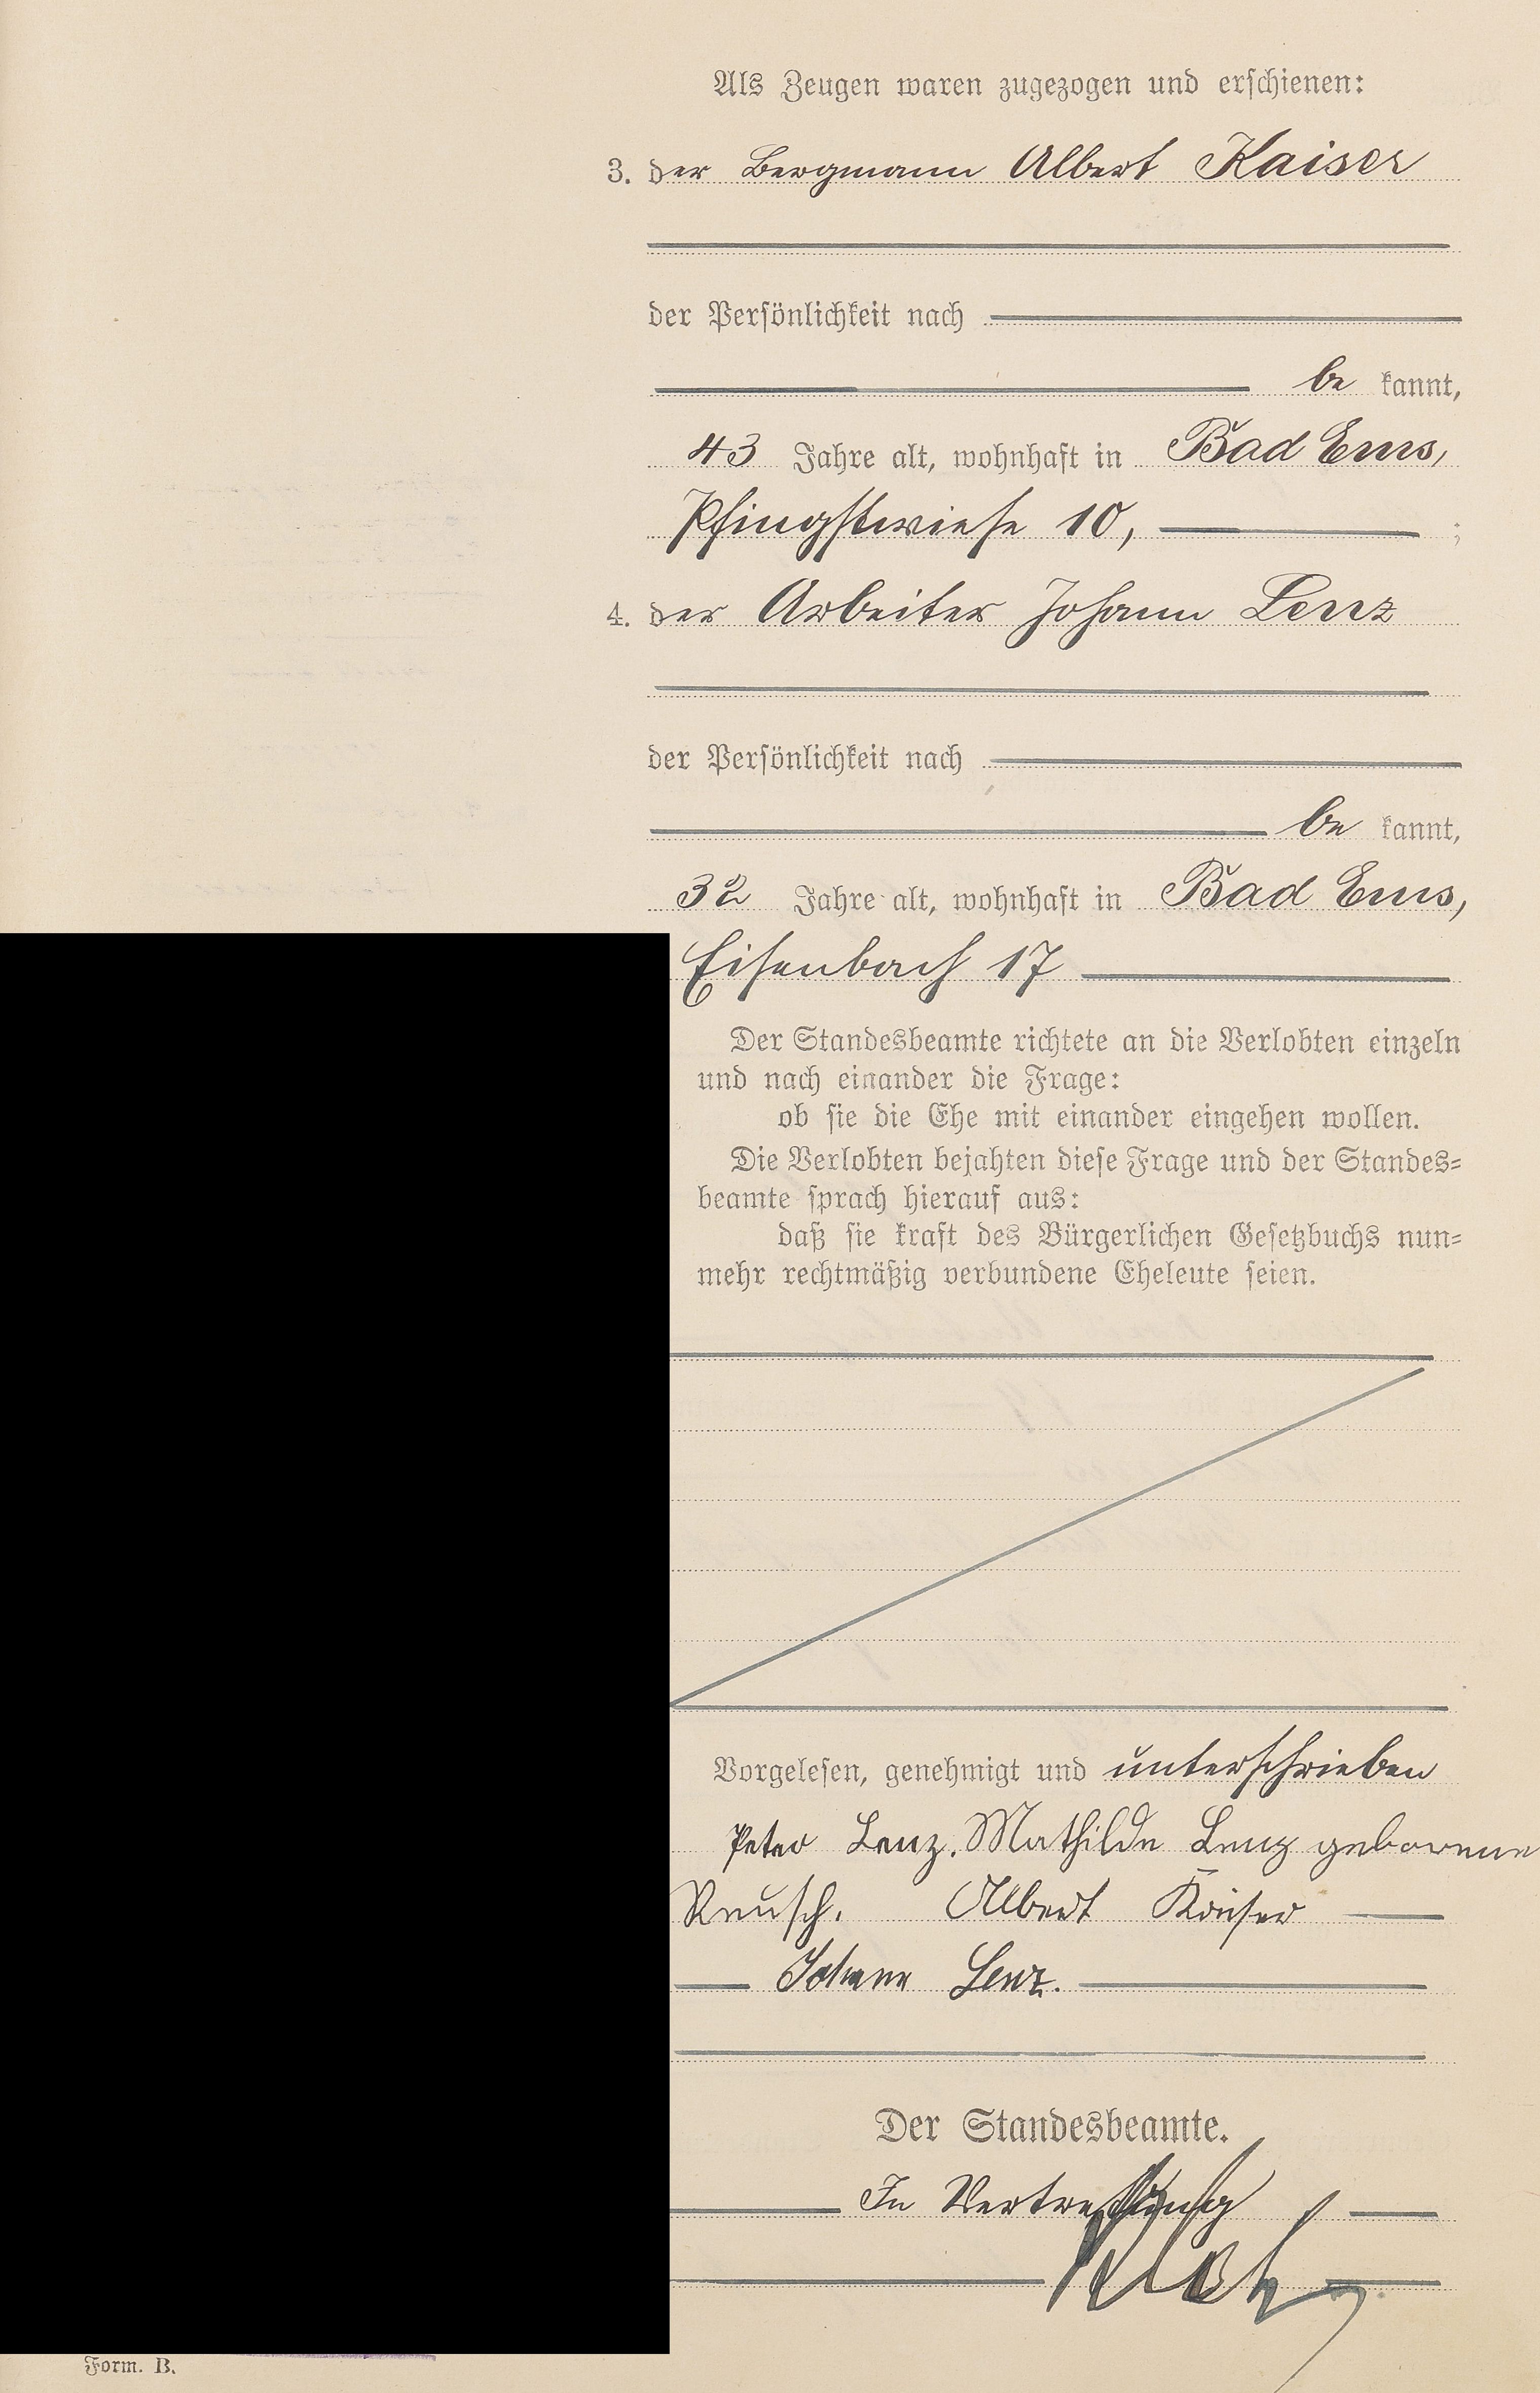 Als Zeugen waren zugezogen und erschienen:
3. der Bergmann Albert Kaiser
der Persönlichkeit nach
be kannt,
43 Jahre alt, wohnhaft in Bad Ems,
Pfingstwiese 10, ;
4. der Arbeiter Johann Lenz
der Persönlichkeit nach
be kannt,
32 Jahre alt, wohnhaft in Bad Ems,
Eisenbach 17
Der Standesbeamte richtete an die Verlobten einzeln
und nach einander die Frage:
ob sie die Ehe mit einander eingehen wollen.
Die Verlobten bejahten diese Frage und der Standes-
beamte sprach hierauf aus:
daß sie kraft des Bürgerlichen Gesetzbuchs nun-
mehr rechtmäßig verbundene Eheleute seien.
Vorgelesen, genehmigt und unterschrieben
Peter Lenz. Mathilde Lenz geborene
Reusch. Albert Kaiser
Johann Lenz.
Der Standesbeamte.
In Vertretung
Form. B.